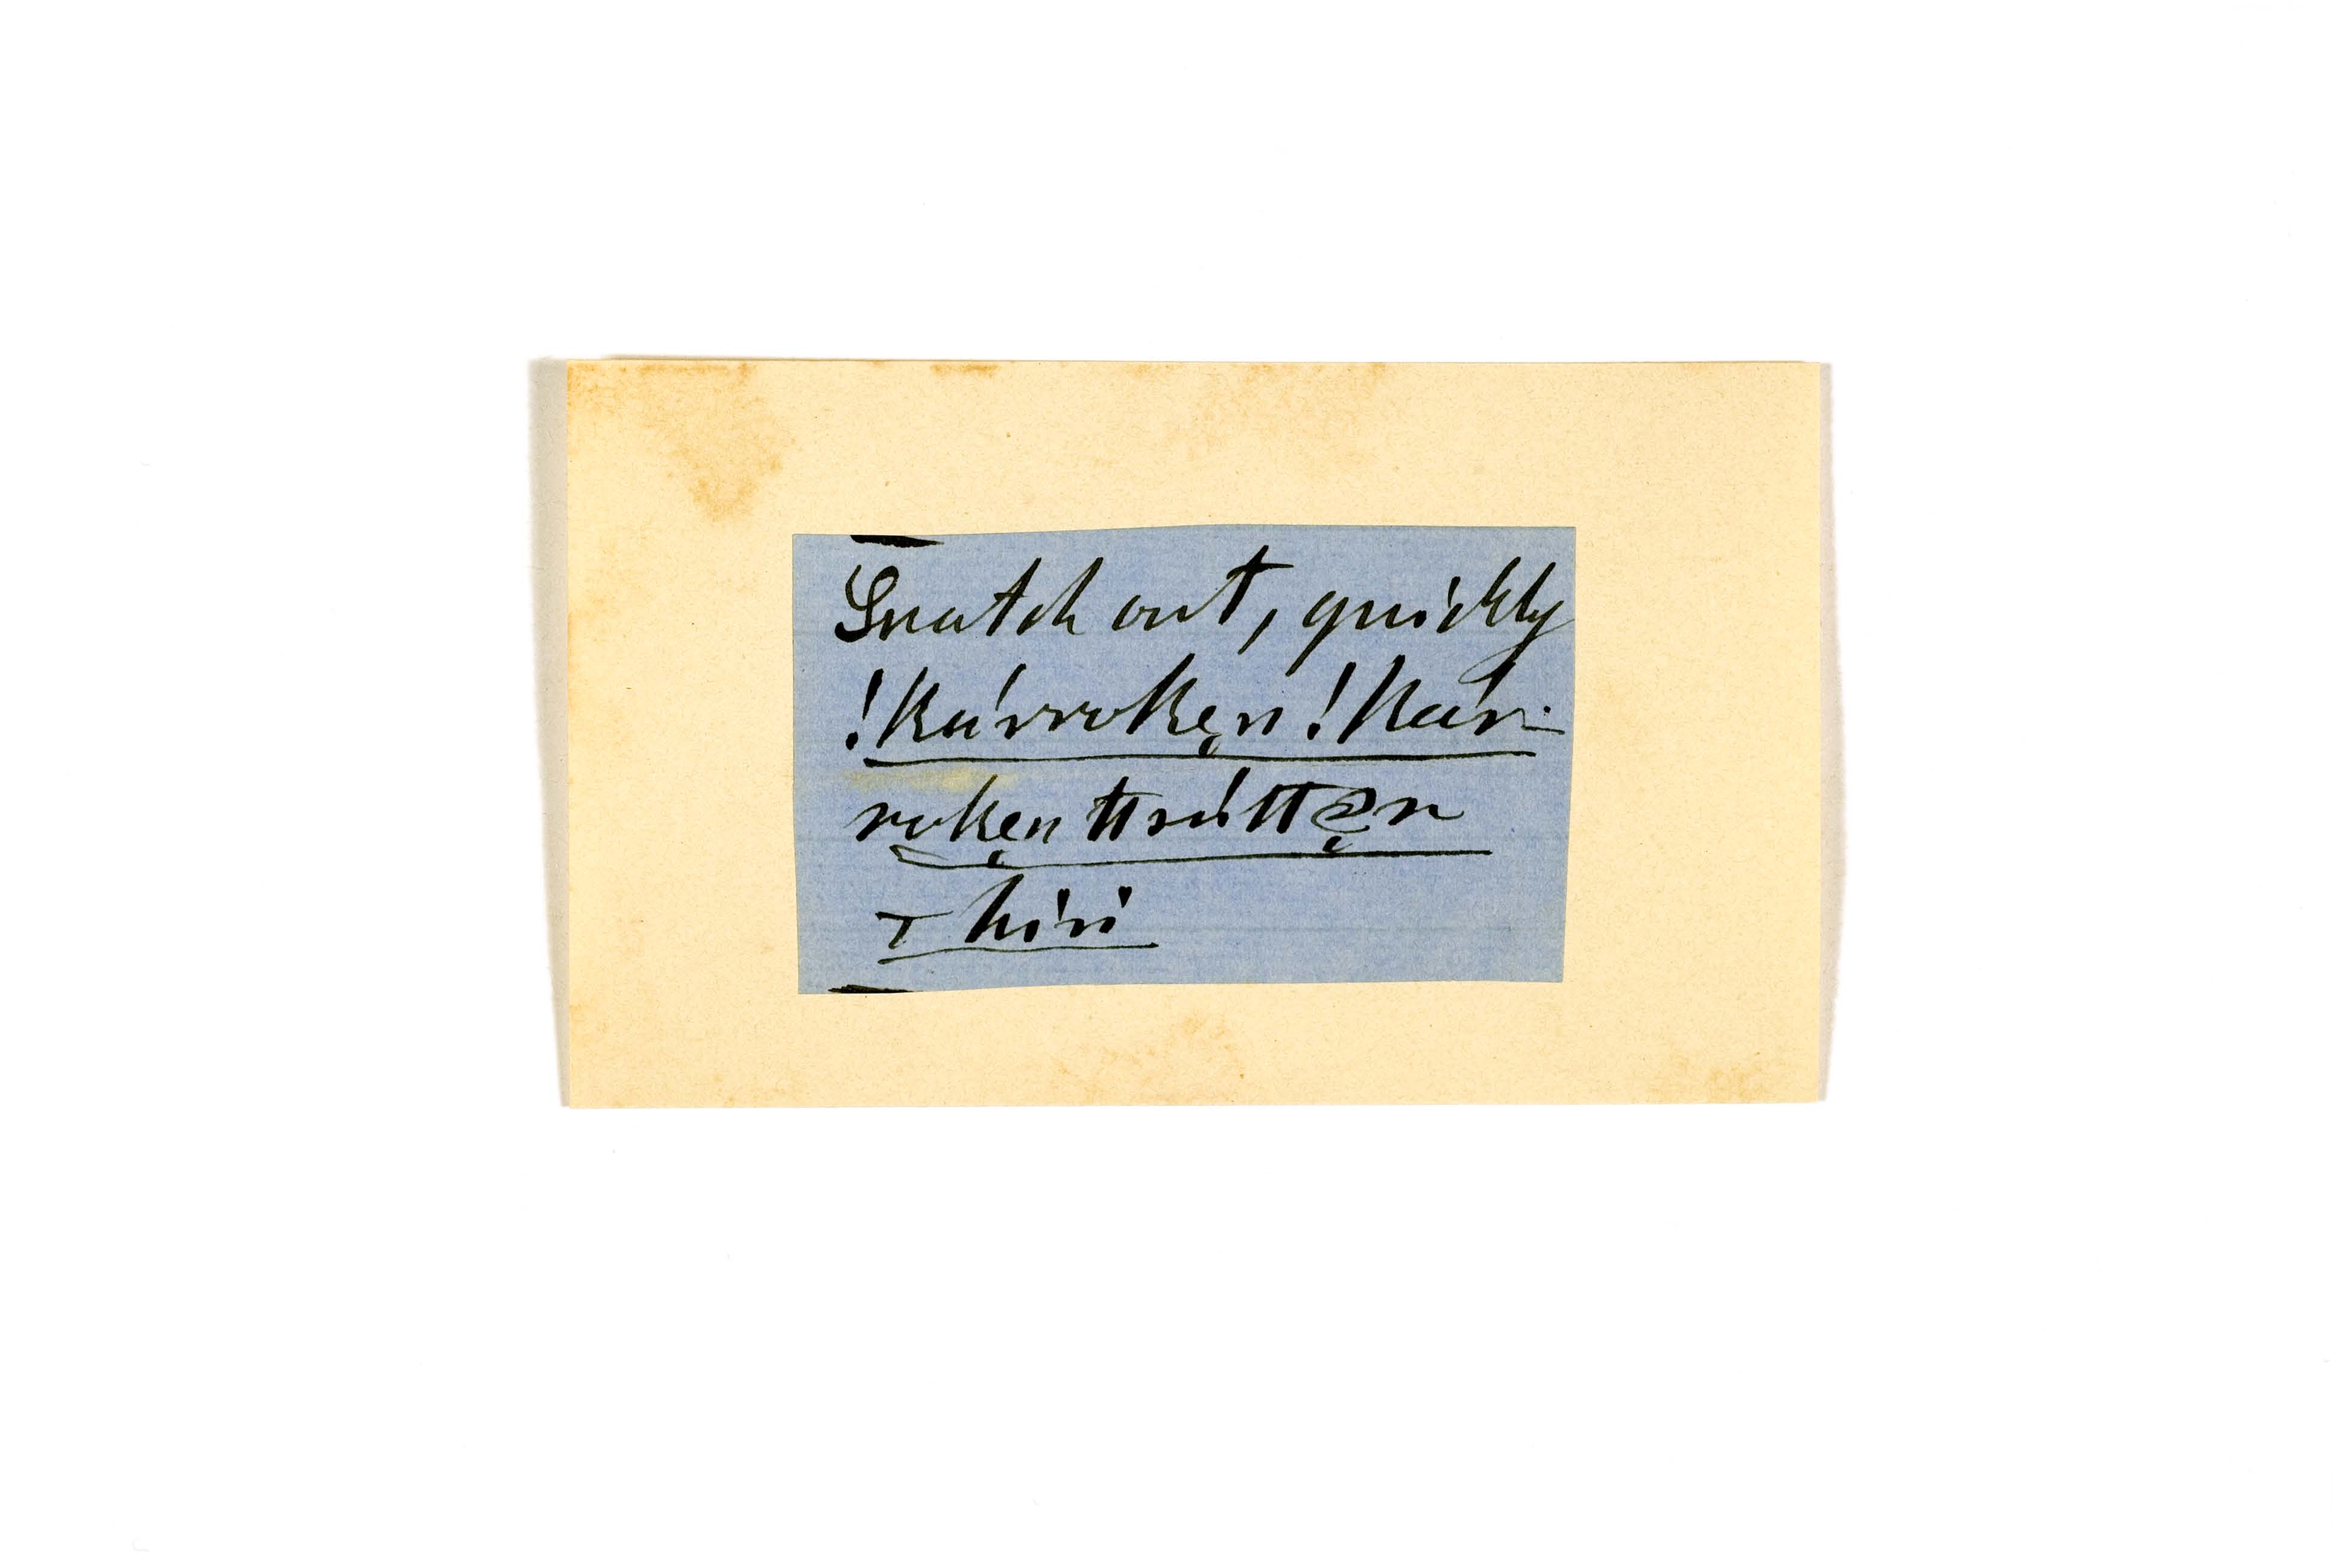 Snatch out, quickly
!kárroken̥ !kár-
roken ttsắttẹn
T hiri